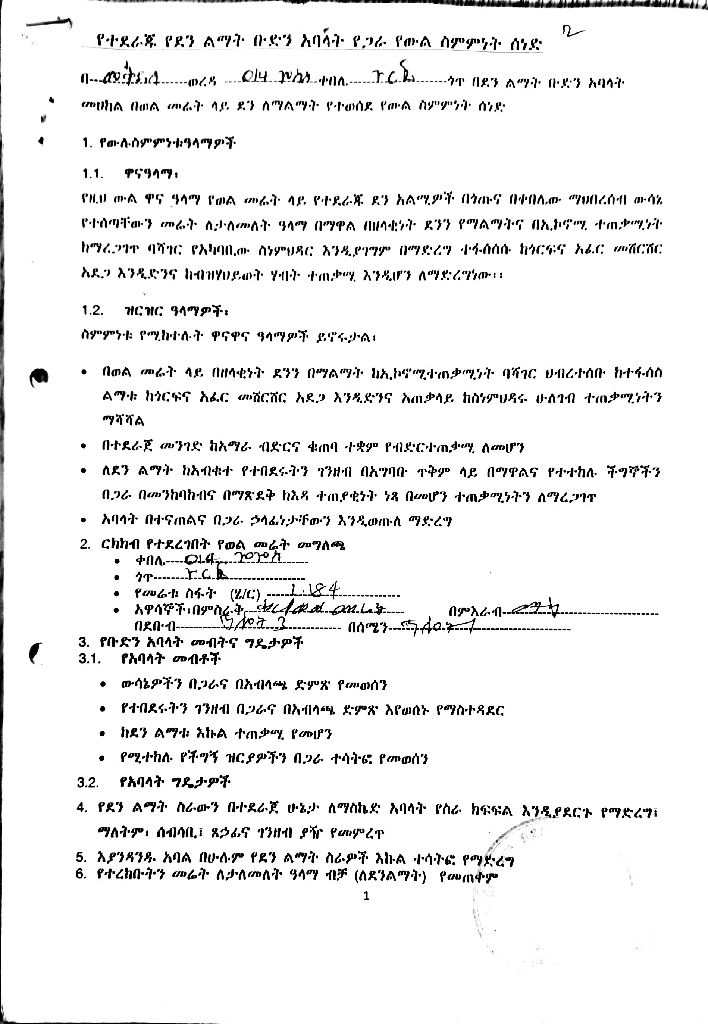 2
የተደራጁ የደን ልማት ቡድን አባላት የጋራ የውል ስምምነት ሰነድ
በ ወረዳ ቀበሌ ጎጥ በደን ልማት ቡድን አባላት
መሀከል በወል መሬት ላይ ደን ለማልማት የተወሰደ የውል ስምምነት ሰነድ
1. የውሉስምምነቱዓላማዎች
1.1. ዋናዓላማ፡
የዚህ ውል ዋና ዓላማ የወል መሬት ላይ የተደራጁ ደን አልሚዎች በጎጡና በቀበሌው ማህበረሰብ ውሳኔ
የተሰጣቸውን መሬት ለታለመለት ዓላማ በማዋል በዘላቂነት ደንን የማልማትና በኢኮኖሚ ተጠቃሚነት
ከማረጋገጥ ባሻገር የአካባቢው ስነምህዳር እንዲያገግም በማድረግ ተፋሰሰሱ ከጎርፍና አፈር መሸርሸር
አደጋ እንዲድንና ከብዝሃህይወት ሃብት ተጠቃሚ እንዲሆን ለማድረግነው፡፡
1.2. ዝርዝር ዓላማዎች፡
ስምምነቱ የሚከተሉት ዋናዋና ዓላማዎች ይኖሩታል፡
• በወል መሬት ላይ በዘላቂነት ደንን በማልማት ከኢኮኖሚተጠቃሚነት ባሻገር ህብረተሰቡ ከተፋሰስ
ልማቱ ከጎርፍና አፈር መሸርሸር አደጋ እንዲድንና አጠቃላይ ከስነምህዳሩ ሁለገብ ተጠቃሚነትን
ማሻሻል
• በተደራጀ መንገድ ከአማራ ብድርና ቁጠባ ተቋም የብድርተጠቃሚ ለመሆን
• ለደን ልማት ከአብቁተ የተበደሩትን ገንዘብ በአግባቡ ጥቅም ላይ በማዋልና የተተከሉ ችግኞችን
በጋራ በመንከባከብና በማጽደቅ ከእዳ ተጠያቂነት ነጻ በመሆን ተጠቃሚነትን ለማረጋገጥ
• አባላት በተናጠልና በጋራ ኃላፊነታቸውን እንዲወጡለ ማድረግ
2. ርክክብ የተደረገበት የወል መሬት መግለጫ
• ቀበሌ
• ጎጥ
• የመሬቱ ስፋት (ሄ/ር) 1.184
• አዋሳኞች፡በምስራቅ በምእራብ
በደቡብ በሰሜን
3. የቡድን አባላት መብትና ግዴታዎች
3.1. የአባላት መብቶች
• ውሳኔዎችን በጋራና በአብላጫ ድምጽ የመወሰን
• የተበደሩትን ገንዘብ በጋራና በአብላጫ ድምጽ እየወሰኑ የማስተዳደር
• ከደን ልማቱ እኩል ተጠቃሚ የመሆን
• የሚተከሉ የችግኝ ዝርያዎችን በጋራ ተሳትፎ የመወሰን
3.2. የአባላት ግዴታዎች
4. የደን ልማት ስራውን በተደራጀ ሁኔታ ለማስኬድ አባላት የስራ ክፍፍል እንዲያደርጉ የማድረግ፤
ማለትም፡ ሰብሳቢ፤ ጸኃፊና ገንዘብ ያዥ የመምረጥ
5. እያንዳንዱ አባል በሁሉም የደን ልማት ስራዎች እኩል ተሳትፎ የማድረግ
6. የተረከቡትን መሬት ለታለመለት ዓላማ ብቻ (ለደንልማት) የመጠቀም
1